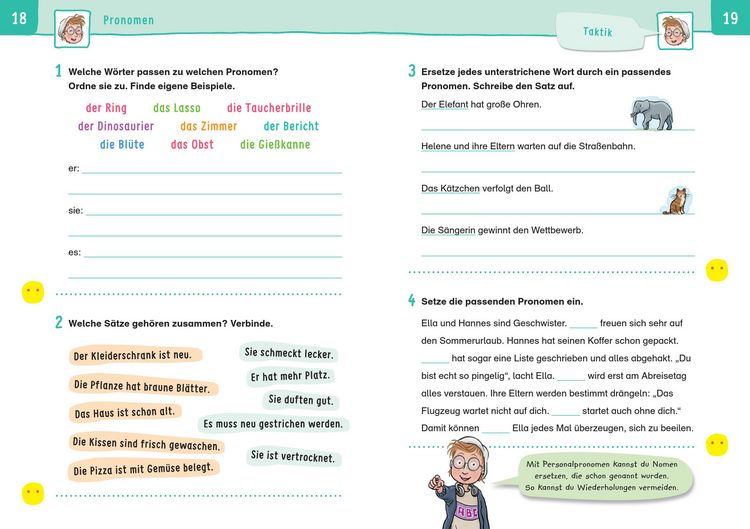 18
Pronomen
1 Welche Wörter passen zu welchen Pronomen?
Ordne sie zu. Finde eigene Beispiele.
der Ring das Lasso die Taucherbrille
der Dinosaurier das Zimmer der Bericht
die Blüte das Obst die Gießkanne
er:
sie:
es:
2 Welche Sätze gehören zusammen? Verbinde.
Der Kleiderschrank ist neu.
Die Pflanze hat braune Blätter.
Das Haus ist schon alt.
Die Kissen sind frisch gewaschen.
Die Pizza ist mit Gemüse belegt.
Sie schmeckt lecker.
Er hat mehr Platz.
Sie duften gut.
Es muss neu gestrichen werden.
Sie ist vertrocknet.
Taktik
19
3 Ersetze jedes unterstrichene Wort durch ein passendes
Pronomen. Schreibe den Satz auf.
Der Elefant hat große Ohren.
Helene und ihre Eltern warten auf die Straßenbahn.
Das Kätzchen verfolgt den Ball.
Die Sängerin gewinnt den Wettbewerb.
4 Setze die passenden Pronomen ein.
Ella und Hannes sind Geschwister. _____ freuen sich sehr auf
den Sommerurlaub. Hannes hat seinen Koffer schon gepackt.
_____ hat sogar eine Liste geschrieben und alles abgehakt. „Du
bist echt so pingelig“, lacht Ella. _____ wird erst am Abreisetag
alles verstauen. Ihre Eltern werden bestimmt drängeln: „Das
Flugzeug wartet nicht auf dich. _____ startet auch ohne dich.“
Damit können _____ Ella jedes Mal überzeugen, sich zu beeilen.
ABC
Mit Personalpronomen kannst du Nomen
ersetzen, die schon genannt wurden.
So kannst du Wiederholungen vermeiden.